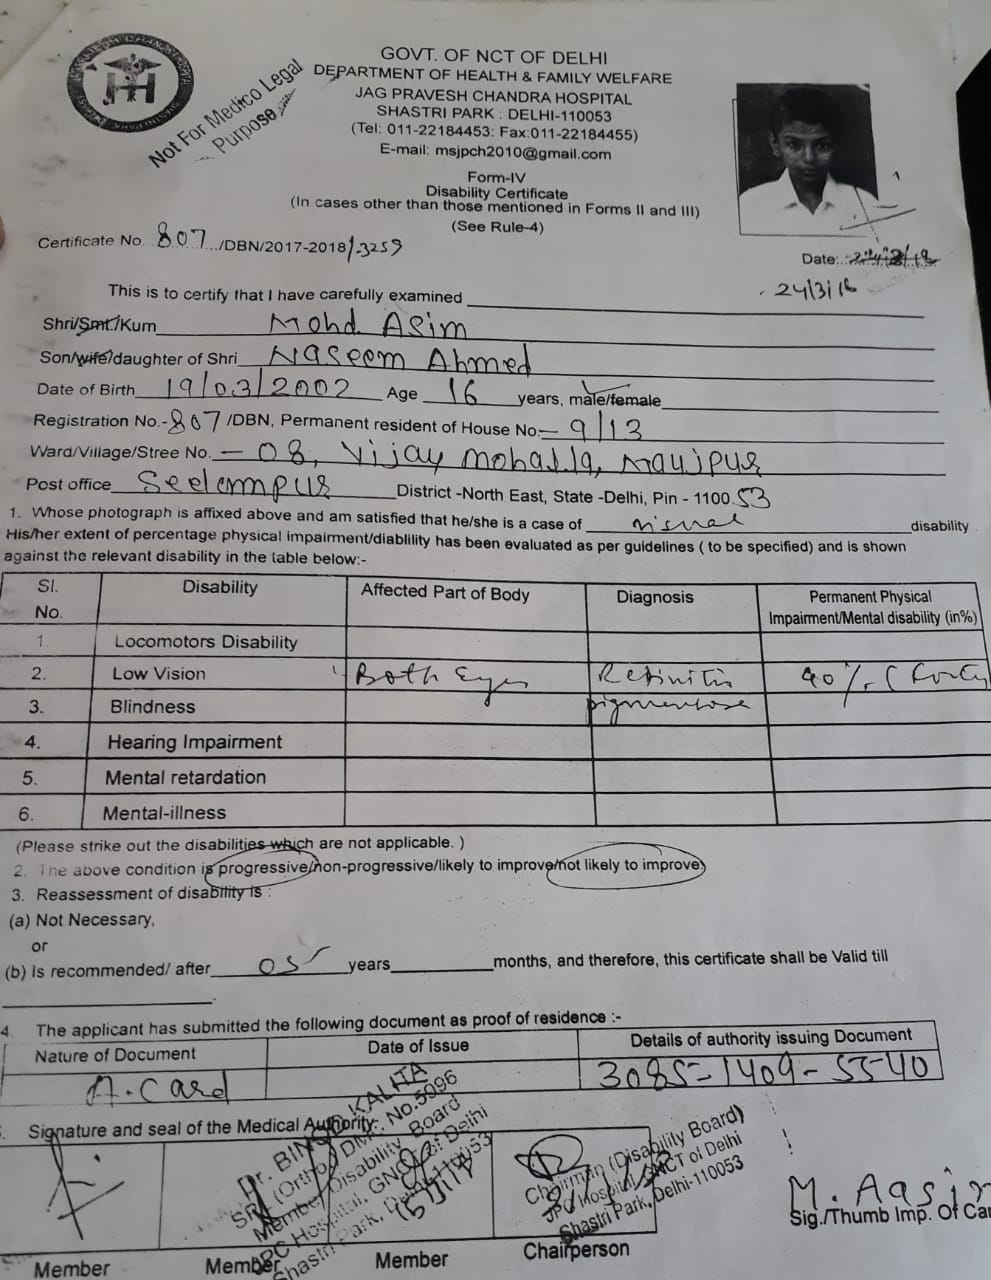 GOVT. OF NCT OF DELHI
DEPARTMENT OF HEALTH & FAMILY WELFARE
JAG PRAVESH CHANDRA HOSPITAL
SHASTRI PARK : DELHI-110053
(Tel: 011-22184453: Fax:011-22184455)
E-mail: msjpch2010@gmail.com
Not For Medico Legal
Purpose
Form-IV
Disability Certificate
(In cases other than those mentioned in Forms II and III)
(See Rule-4)
Certificate No. 807 /DBN/2017-2018/3259
Date:
24/3/18
This is to certify that I have carefully examined
Shri/Smt./Kum Mohd Asim
Son/wife/daughter of Shri Naseem Ahmed
Date of Birth 19/03/2002 Age 16 years, male/female
Registration No.-807 /DBN, Permanent resident of House No.- 9/13
Ward/Village/Stree No. - 08, Vijay Mohalla, Maujpur
Post office Seelampur District -North East, State -Delhi, Pin - 1100 53
1. Whose photograph is affixed above and am satisfied that he/she is a case of visual disability
His/her extent of percentage physical impairment/diablility has been evaluated as per guidelines ( to be specified) and is shown
against the relevant disability in the table below:-
Sl. No. Disability Affected Part of Body Diagnosis Permanent Physical Impairment/Mental disability (in%)
1. Locomotors Disability
2. Low Vision Both Eyes Retinitis pigmentosa 40% (Forty
3. Blindness
4. Hearing Impairment
5. Mental retardation
6. Mental-illness
(Please strike out the disabilities which are not applicable. )
2. The above condition is progressive/non-progressive/likely to improve/not likely to improve
3. Reassessment of disability is :
(a) Not Necessary,
or
(b) Is recommended/ after 05 years months, and therefore, this certificate shall be Valid till
4. The applicant has submitted the following document as proof of residence :-
Nature of Document Date of Issue Details of authority issuing Document
A. Card 3085-1409-5540
Signature and seal of the Medical Authority:
KALITA
SR (Ortho) DMC. No.5996
Member Disability Board
Hospital, GNCT of Delhi
Shastri Park, Delhi-110053
Chairman (Disability Board)
JPC Hospital GNCT of Delhi
Shastri Park, Delhi-110053
Member Member Member Chairperson
M. Aasim
Sig./Thumb Imp. Of Can